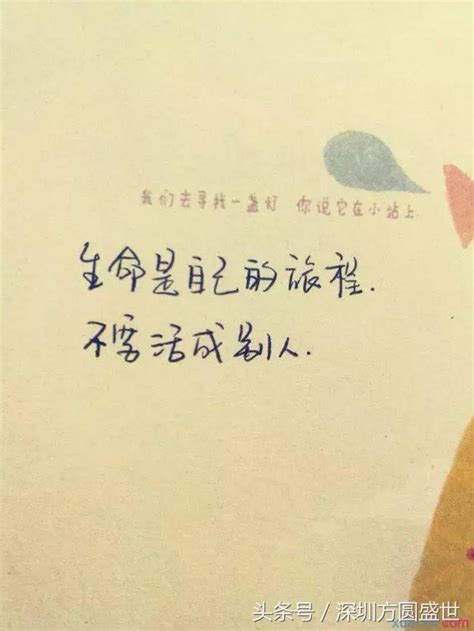 我们去寻找一盏灯 你说它在小站上
生命是自己的旅程.
不要活成别人.
头条号/深圳方圆盛世